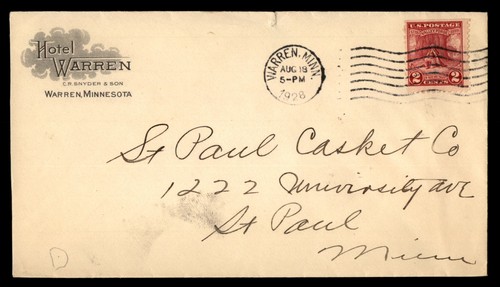 Hotel
WARREN
C.R. SNYDER & SON
WARREN, MINNESOTA
WARREN, MINN.
AUG 18
5-PM
1928
U.S. POSTAGE
VALLEY FORGE
2 CENTS 2
St Paul Casket Co
1222 University ave
St Paul
Minn
D